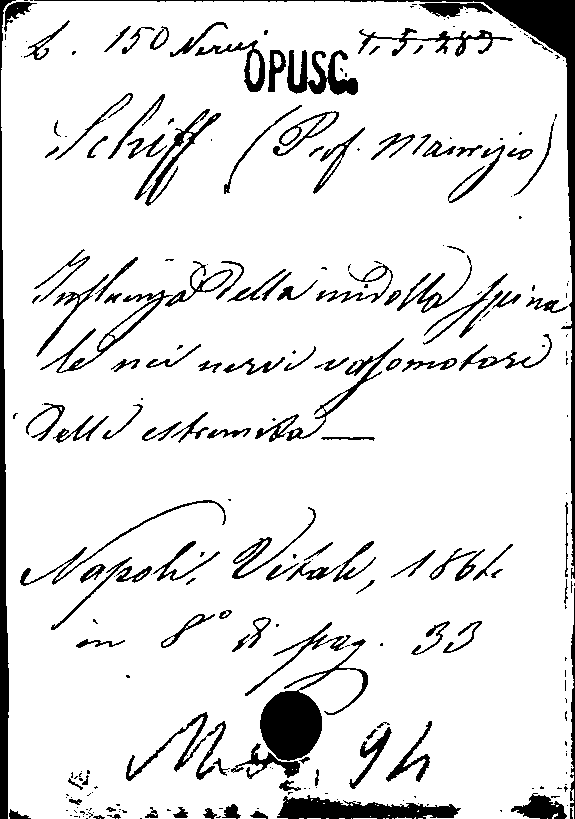 L. 150 Nervi 4,5,283
OPUSC.
Schiff (Prof. Maurizio)
Influenza della midolla spina
le nei nervi vasomotori
delle estremità —
Napoli, Vitale, 1864
in 8° di pag. 33
94